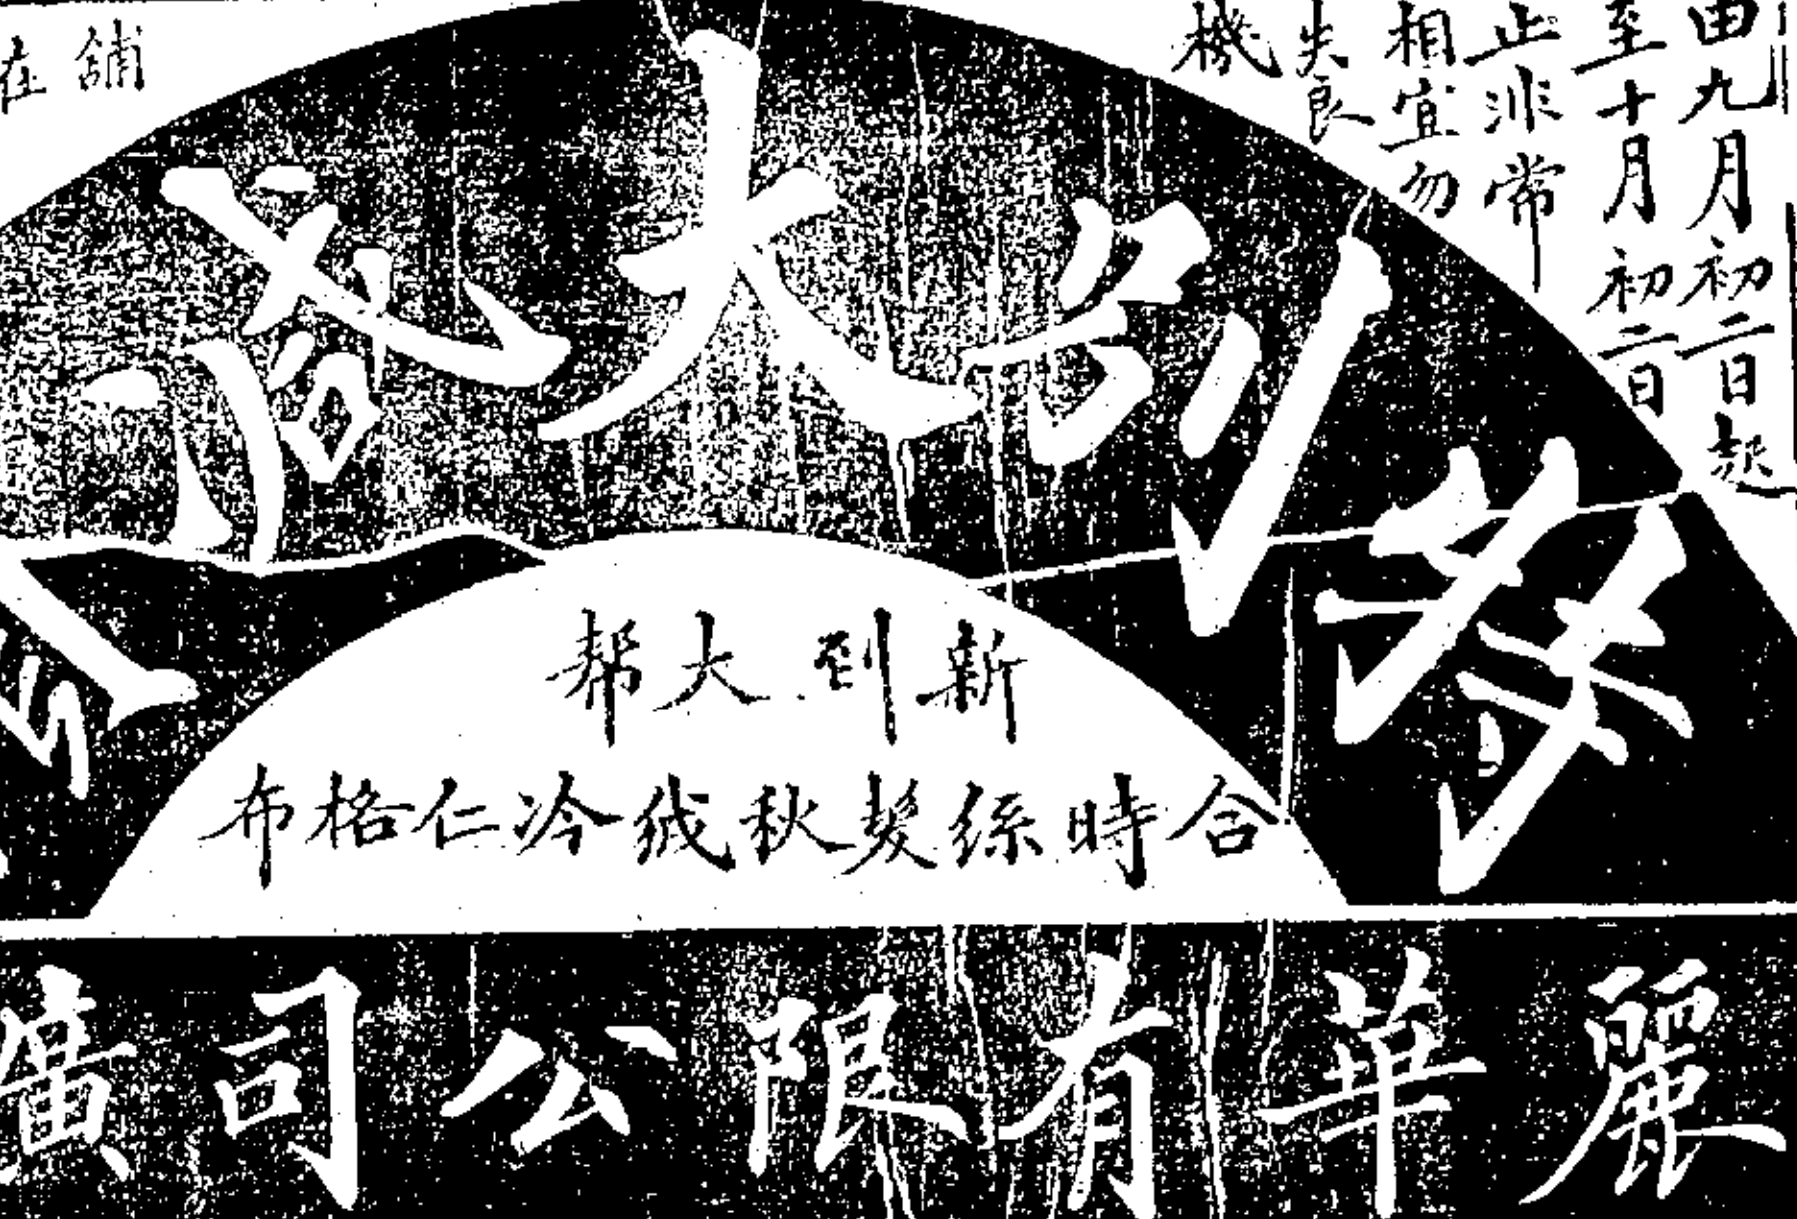 由九月初二日起
至十月初二日
止非常
相宜勿
失良
機
舖
在
特別大減
新到大帮
合時絲髮秋絨冷仁格布
麗華有限公司廣